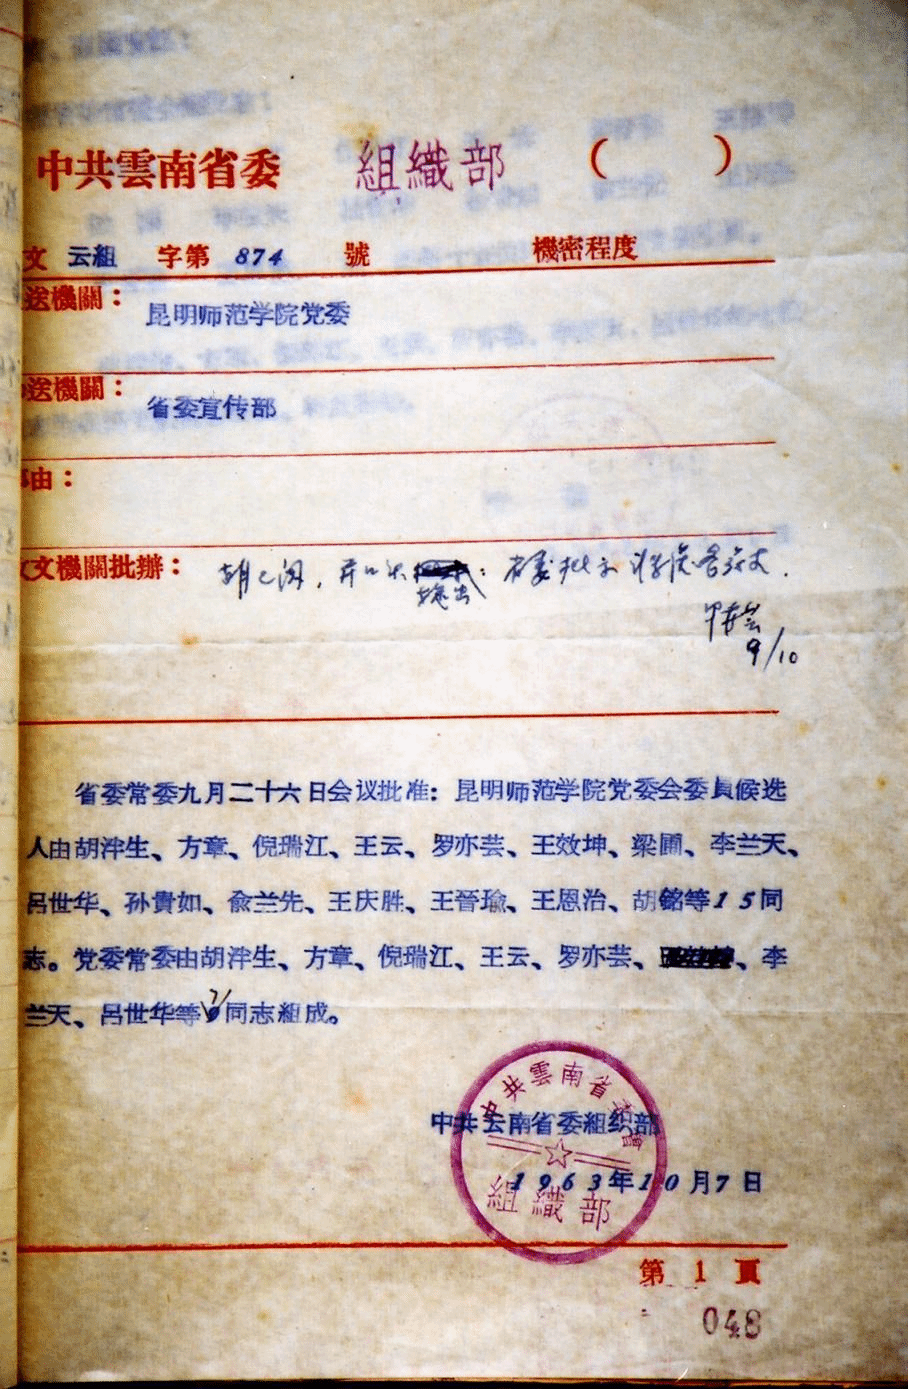 中共雲南省委 組織部 ( )
文 云組 字第 874 號 機密程度
送機關：昆明师范学院党委
送機關：省委宣传部
由：
文機關批辦：
9/10
省委常委九月二十六日会议批准：昆明师范学院党委会委員候选
人由胡泮生、方章、倪瑞江、王云、罗亦芸、王效坤、梁圃、李兰天、
吕世华、孙貴如、兪兰先、王庆胜、王晉瑜、王恩治、胡銘等15同
志。党委常委由胡泮生、方章、倪瑞江、王云、罗亦芸、、李
兰天、吕世华等7同志組成。
中共云南省委組织部
1963年10月7日
中共雲南省委
組織部
第 1 頁
048